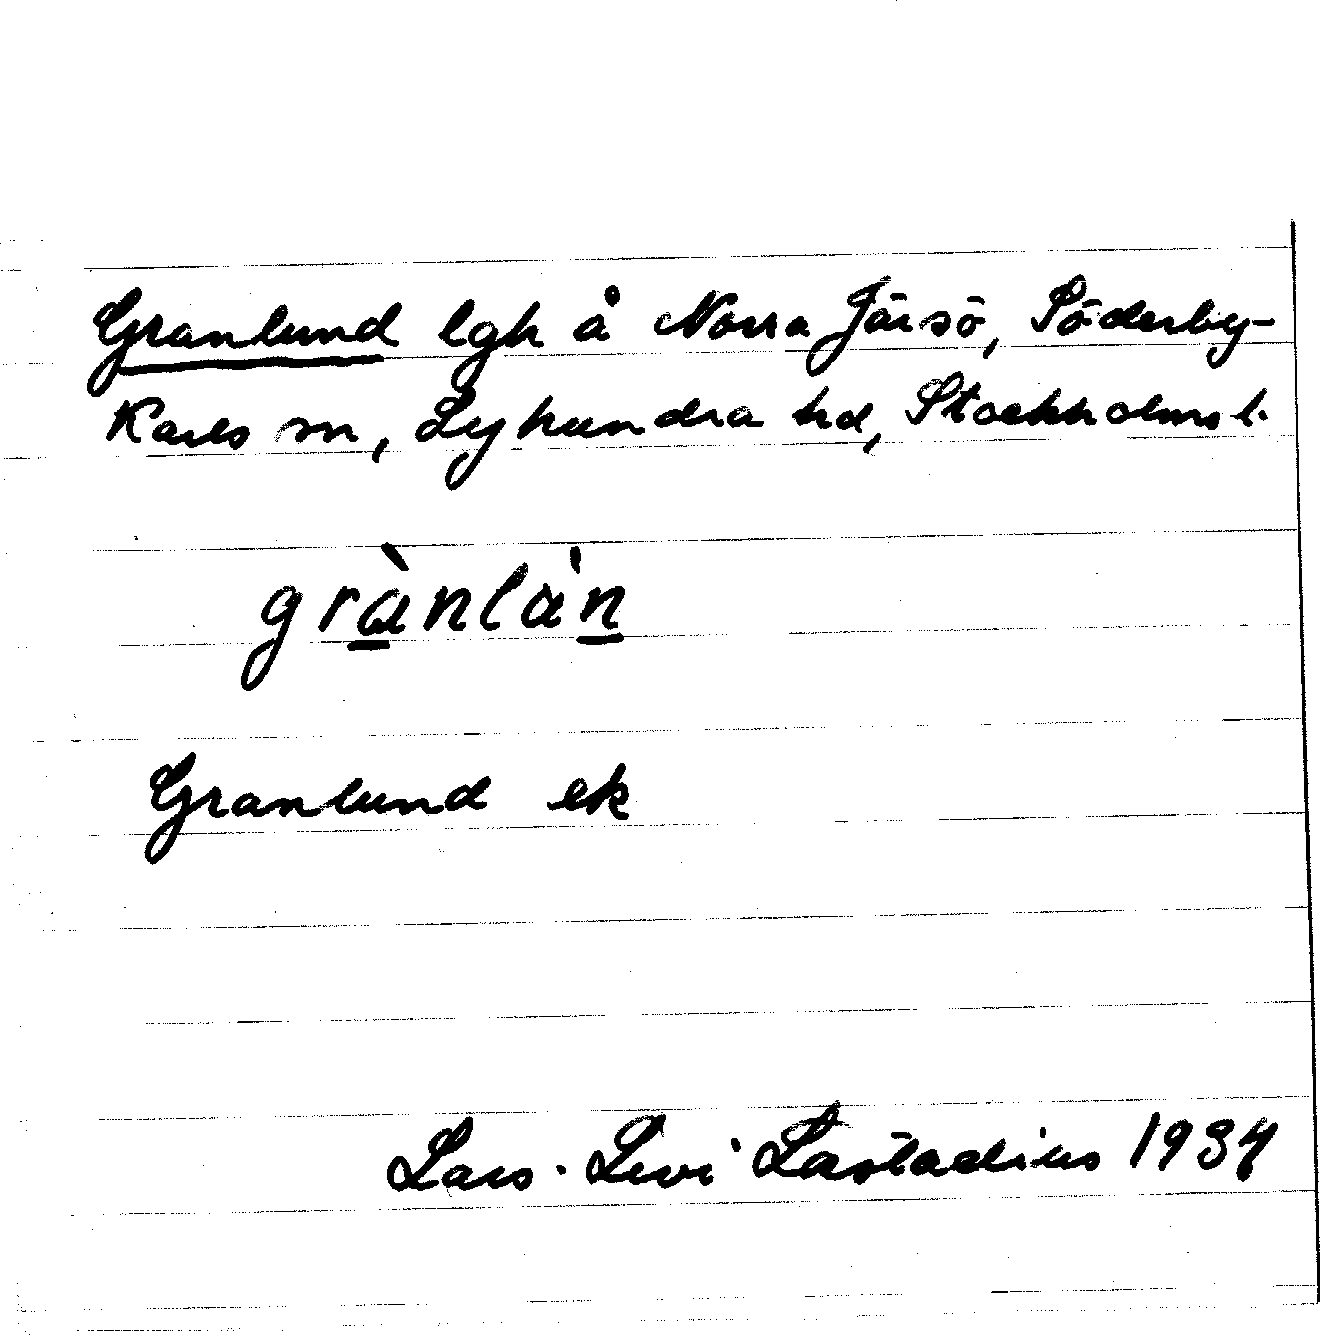 Granlund lgh å Norra Järsö, Söderby-
Karls sn, Lyhundra hd, Stockholms l.
grànlàn
Granlund ek
Lars-Levi Læstadius 1934